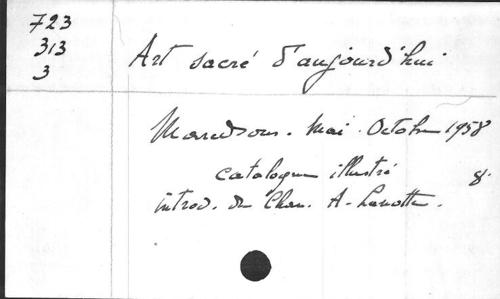 723
313
3
Art sacré d'aujourd'hui
Maredsous. Mai. Octobre 1958
catalogue illustré 8°
introd. du Chan. A. Lanotte.